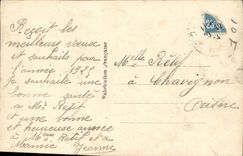 Reçoit les
meilleurs vœux
et souhaits pour
l'année 1925
Je souhaite une
bonne santé
à Mr Retif
et une bonne
et heureuse année
à Mme Retif et à
Mamie Jeanne
Fabrication Française
Melle Rétif
à Chavignon
Aisne